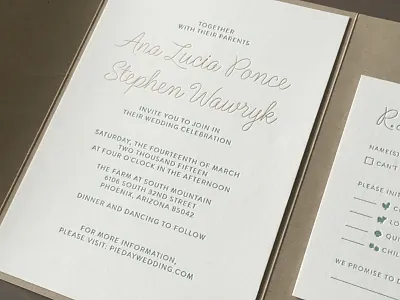 TOGETHER
WITH THEIR PARENTS
Ana Lucia Ponce
Stephen Wawryk
INVITE YOU TO JOIN IN
THEIR WEDDING CELEBRATION
SATURDAY, THE FOURTEENTH OF MARCH
TWO THOUSAND FIFTEEN
AT FOUR O'CLOCK IN THE AFTERNOON
THE FARM AT SOUTH MOUNTAIN
6106 SOUTH 32ND STREET
PHOENIX, ARIZONA 85042
DINNER AND DANCING TO FOLLOW
FOR MORE INFORMATION,
PLEASE VISIT: PIEDAYWEDDING.COM
R.
NAME(S)
CAN'T
PLEASE INIT
C
LO
QUI
CHIL
WE PROMISE TO D